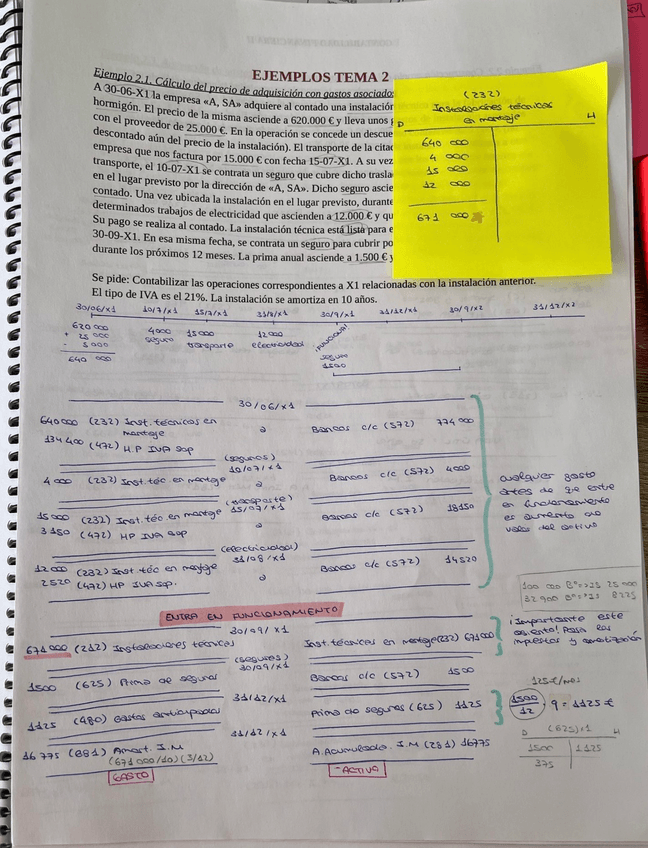 EJEMPLOS TEMA 2
Ejemplo 2.1. Cálculo del precio de adquisición con gastos asociados
A 30-06-X1 la empresa «A, SA» adquiere al contado una instalación
hormigón. El precio de la misma asciende a 620.000 € y lleva unos
con el proveedor de 25.000 €. En la operación se concede un descue
descontado aún del precio de la instalación). El transporte de la citad
empresa que nos factura por 15.000 € con fecha 15-07-X1. A su vez
transporte, el 10-07-X1 se contrata un seguro que cubre dicho trasla
en el lugar previsto por la dirección de «A, SA». Dicho seguro ascie
contado. Una vez ubicada la instalación en el lugar previsto, durante
determinados trabajos de electricidad que ascienden a 12.000 € y qu
Su pago se realiza al contado. La instalación técnica está lista para e
30-09-X1. En esa misma fecha, se contrata un seguro para cubrir po
durante los próximos 12 meses. La prima anual asciende a 1.500 € y
Se pide: Contabilizar las operaciones correspondientes a X1 relacionadas con la instalación anterior.
El tipo de IVA es el 21%. La instalación se amortiza en 10 años.
(232)
Instalaciones técnicas
D en montaje H
640 000
4 000
15 000
12 000
671 000
30/06/X1 10/7/X1 15/7/X1 31/8/X1 30/9/X1 31/12/X1 30/9/X2 31/12/X2
620 000 4000 15000 12000 ¡FUNCIONA!
+ 25 000 seguro transporte electricidad seguro
- 5 000 1500
640 000
30/06/X1
640000 (232) Inst. técnicas en montaje a Bancos c/c (572) 774 000
134 400 (472) H.P IVA Sop
(seguros)
10/07/X1
4 000 (232) Inst. téc en montaje a Bancos c/c (572) 4000
(transporte)
15/07/X1
15 000 (232) Inst. téc. en montaje a Bancos c/c (572) 18150
3 150 (472) HP IVA Sop
(electricidad)
31/08/X1
12000 (232) Inst téc en montaje a Bancos c/c (572) 14520
2520 (472) HP IVA Sop.
cualquier gasto
antes de que entre
en funcionamiento
es aumento del
valor del activo
100 000 Bº=>25 25 000
32 900 Bº=>25 8225
ENTRA EN FUNCIONAMIENTO
30/09/X1
671 000 (212) Instalaciones técnicas Inst. técnicas en montaje (232) 671 000
¡Importante este
asiento! Para los
impuestos y amortización
(seguros)
30/09/X1
1500 (625) Prima de seguros Bancos c/c (572) 1500
31/12/X1
1125 (480) Gastos anticipados Prima de seguros (625) 1125
125€/mes
1500
12 · 9 = 1125 €
31/12/X1
16 775 (681) Amort. I.M A. Acumulada. I.M (281) 16775
(671 000/10) (3/12)
GASTO - ACTIVO
D (625)X1 H
1500 1125
375